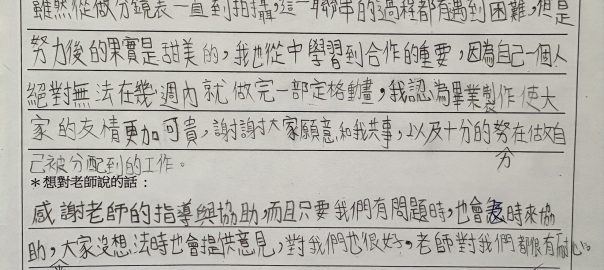 雖然從做分鏡表一直到拍攝,這一聯串的過程都有遇到困難,但是
努力後的果實是甜美的,我也從中學習到合作的重要,因為自己一個人
絕對無法在幾週內就做完一部定格動畫,我認為畢業製作使大
家的友情更加可貴,謝謝大家願意和我共事,以及十分的努在做自
分
己被分配到的工作。
*想對老師說的話:
感謝老師的指導與協助,而且只要我們有問題時,也會及時來協
助,大家沒想法時也會提供意見,對我們也很好,老師對我們都很有耐心。